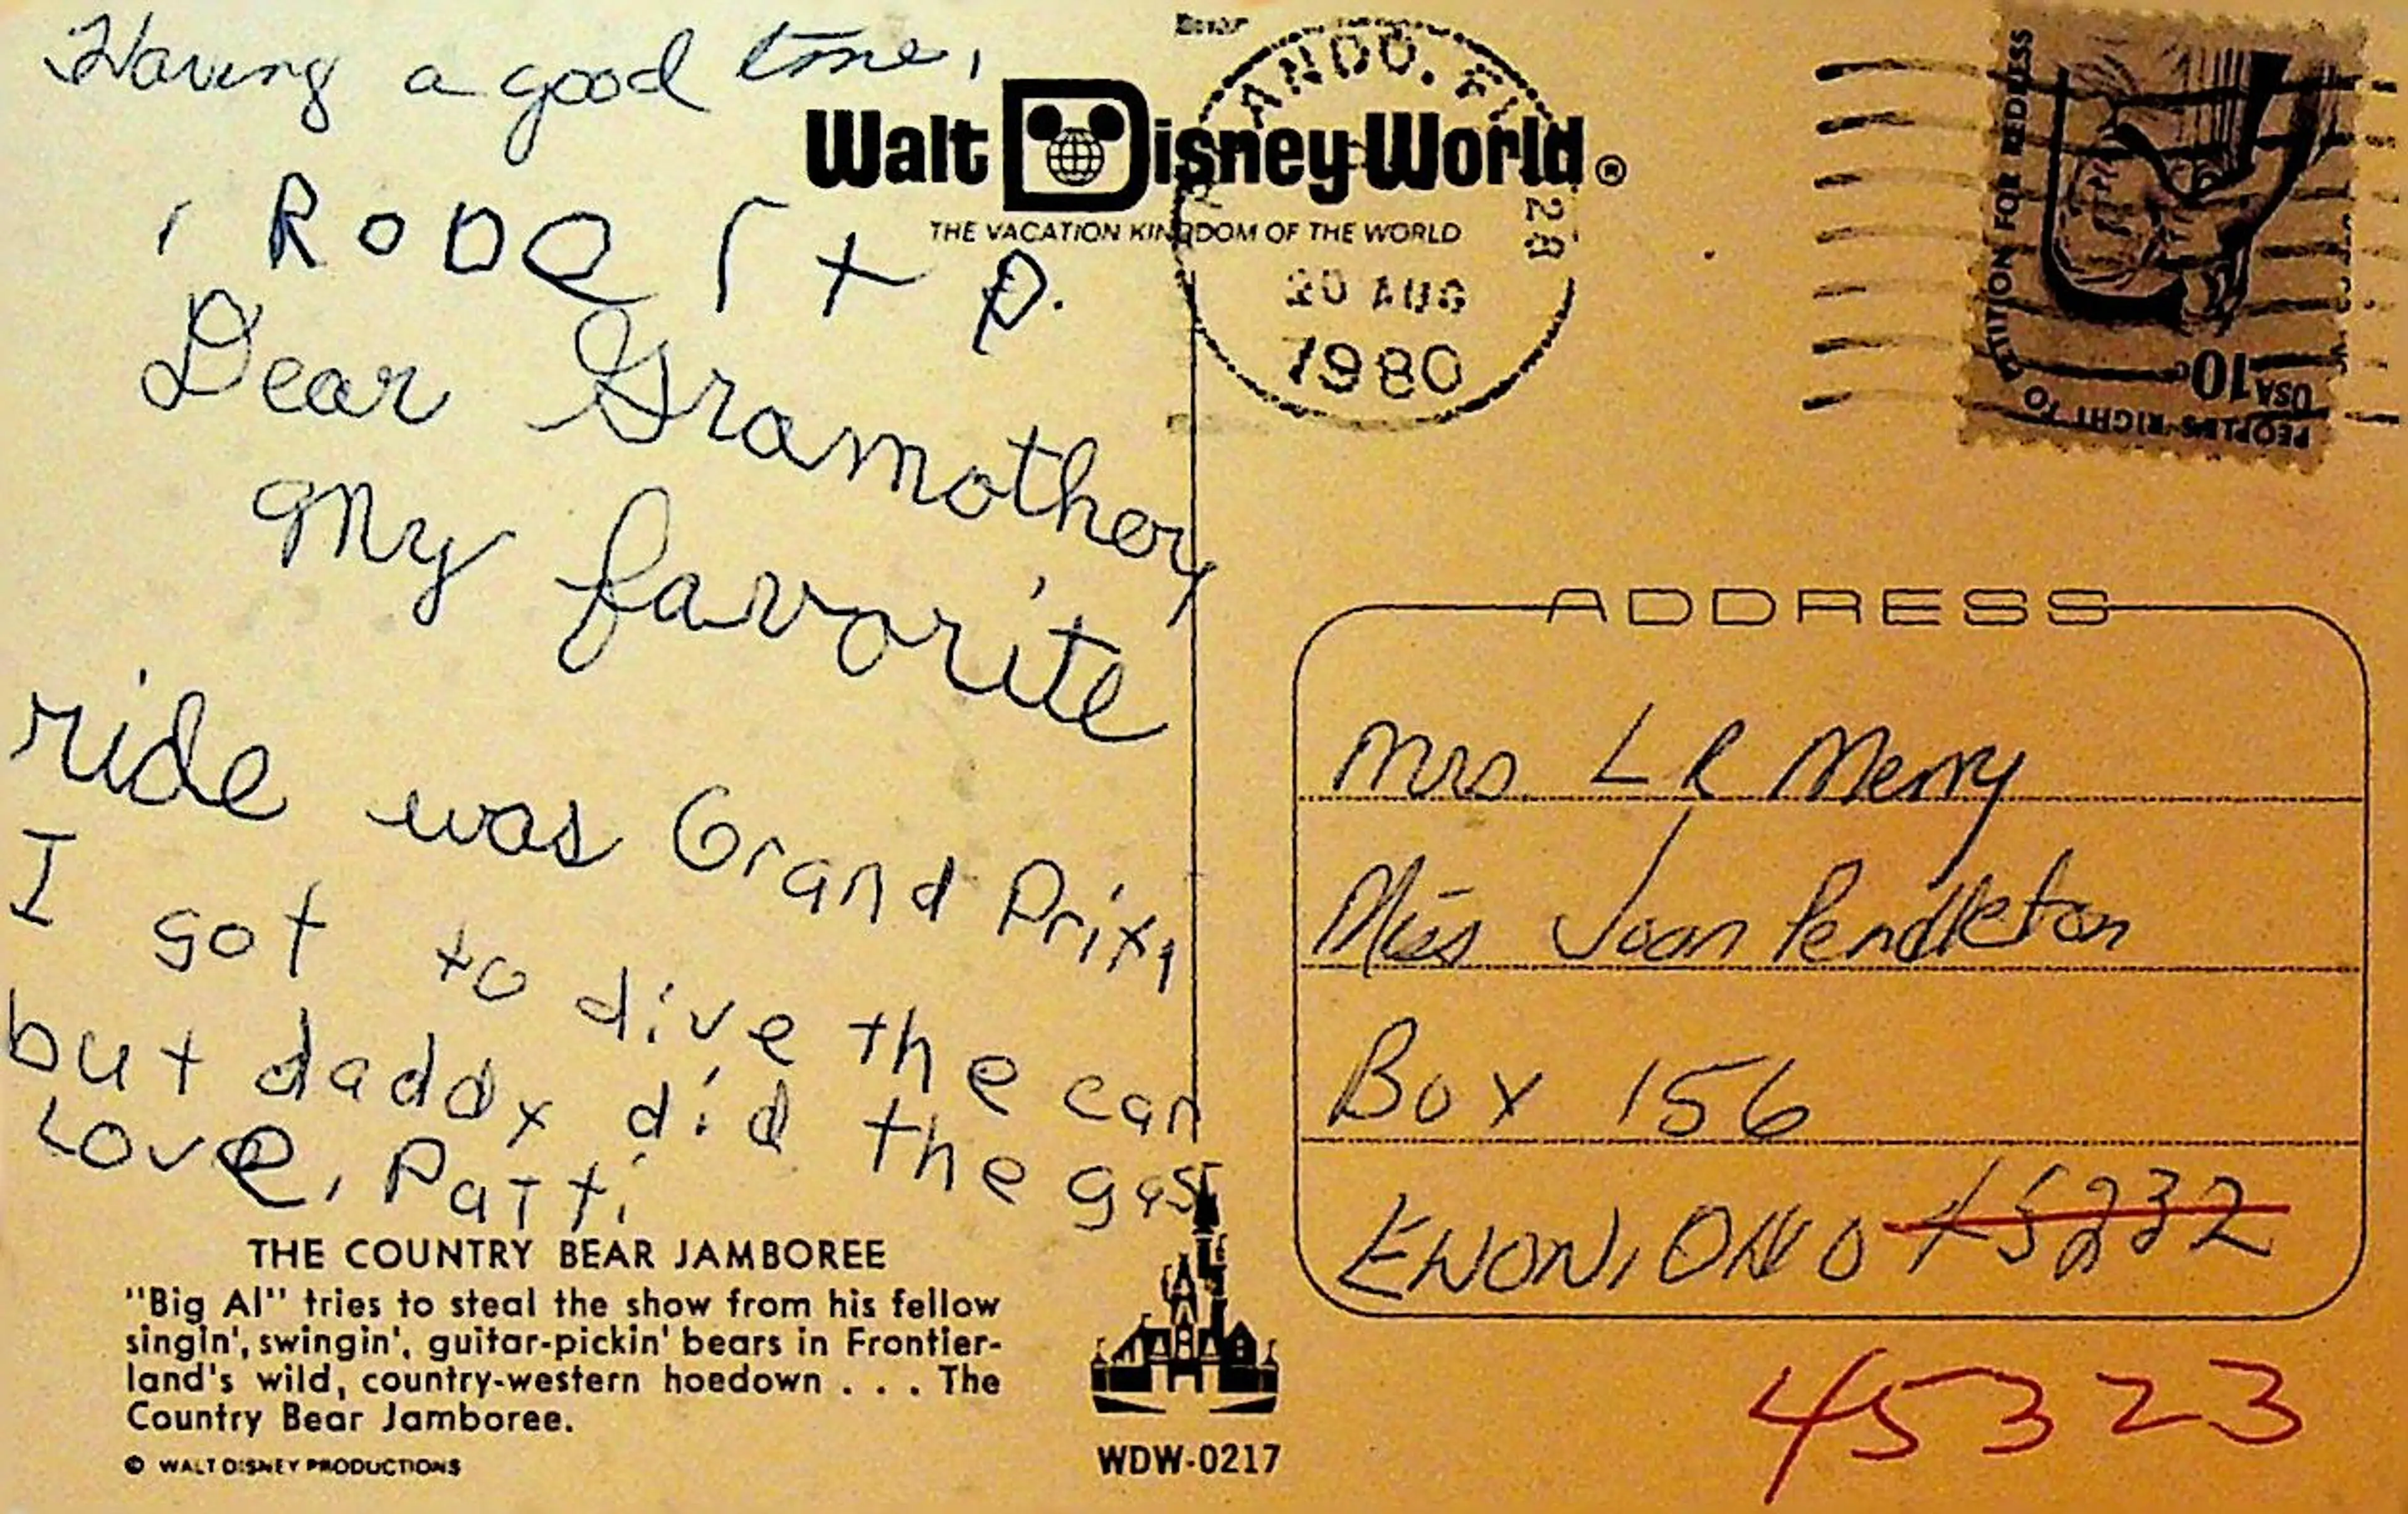 Having a good time,
, RODQ Γ + P.
Dear Gramother,
My favorite
ride was Grand Prix,
I got to dive the car
but daddy did the gas
Love, Patti
THE COUNTRY BEAR JAMBOREE
"Big Al" tries to steal the show from his fellow
singin', swingin', guitar-pickin' bears in Frontier-
land's wild, country-western hoedown . . . The
Country Bear Jamboree.
© WALT DISNEY PRODUCTIONS
Walt Disney World ®
THE VACATION KINGDOM OF THE WORLD
ANDO, FL
28
20 AUG
1980
PEOPLE'S RIGHT TO PETITION FOR REDRESS
USA 10c
ADDRESS
Mrs. L R Merry
Miss Joan Pendleton
Box 156
ENON, OHIO 45232
45323
WDW-0217